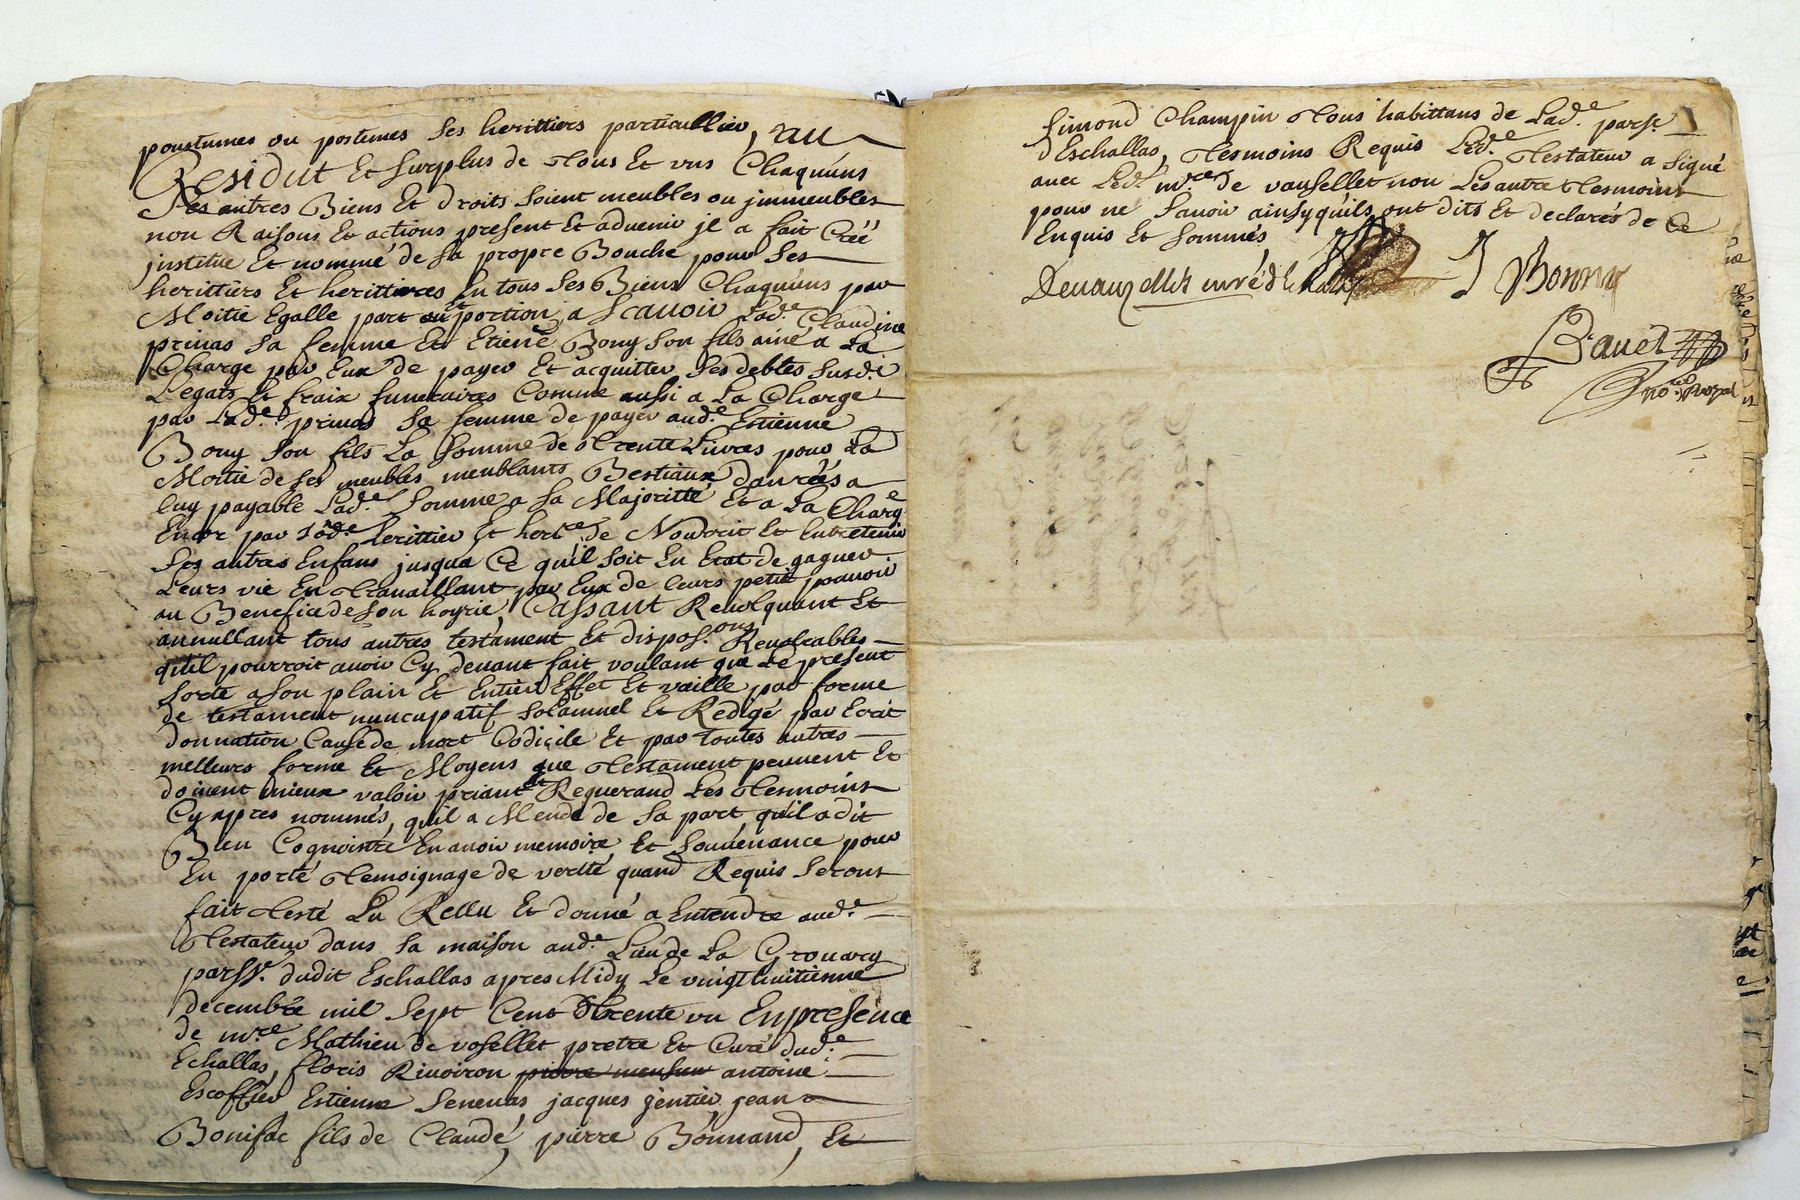 poustumes ou postumes ses herittiers particullier, au
Residut Et surplus de tous Et uns Chaquúns
Ses autres Biens Et droits soient meubles ou jmmeubles
non Raisons Et actions present Et aduenir jl a fait Créé
jnstitue Et nommé de sa propre Bouche pour ses
herittiers Et herittieres En tous ses Biens Chaquúns par
Moitie Egalle part portion, a Scauoir Lad.e Claudine
primas sa femme Et Etiene Bony son fils ainé a La
Charge par Eux de payer Et acquitter ses debtes susd.
Legats Et fraix funeraires Comme aussi a La Charge
par Lad.e primas sa femme de payer aud.e Estienne
Bony son fils La somme de trente Livres pour La
Moitie de ses meubles meublants Bestiaux danrées a
luy payable Lad.e somme a sa Majoritté Et a La Charge
Encor par sesd.e herittier Et herit.re de Nourrit Et Entretenir
ses autres Enfans jusqua Ce qu'il soit En Etat de gagner
Leurs vie En trauaillant par Eux de leurs petit pouuoir
au Benefice de son hoyrie, Cassant Reuolquant Et
annullant tous autres testament Et dispos.ons Reuolcables
qu'il pourroit auoir Cy deuant fait voulant que Le present
sorte a son plain Et Entier Effet Et vaille par forme
de testament nuncupatif solamnel Et Redigé par Ecrit
donnation Cause de mort Codicile Et par toutes autres
melleurs forme Et Moyens que testament peuuent Et
doiuent mieux valoir priant et Requerand Les tesmoins
Cy apres nommés, qu'il a Mendé de sa part qu'il a dit
Bien Cognoistre En auoir memoire Et souuenance pour
En porté temoignage de verité quand Requis seront
fait testé Lu Rellu Et donné a Entendre aud.e
testateur dans sa maison aud.e Lieu de La Grouarcy
parss.e dudit Eschallas apres Midy Le vingt huitienne
decembre mil sept Cent trente un En presence
de m.re Mathieu de vosellet pretre Et Curé dud.e
Echallas, floris Riuoiron antoine
Escoffier Estienne Seneuas jacques gentier, jean
Bonifac fils de Claude, pierre Bonnand, Et
simond Champin tous habittans de Lad.e parss.e
d'Eschallas, tesmoins Requis Led.e testateur a signé
auec Led.t m.re de vausellet non Les autre tesmoins
pour ne sauoir ainsy qu'ils ont dits Et declarés de Ce
Enquis Et sommés
Deuauzellet curé d'
J Bonny
Bauet
No.re Royal